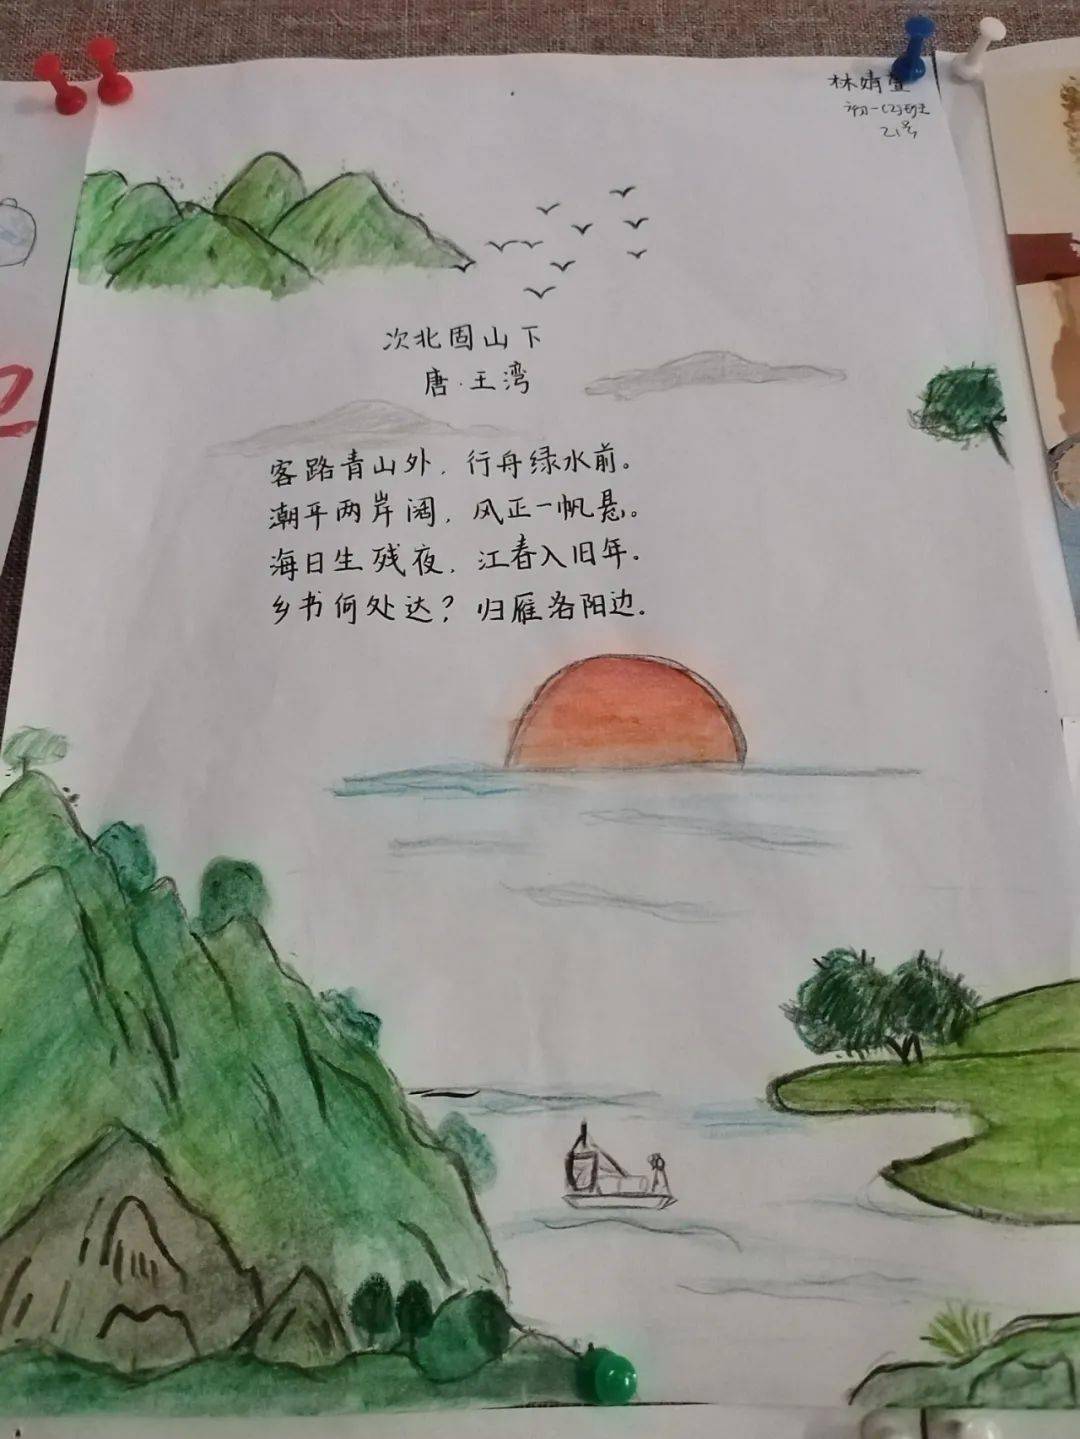 林婧萱
初一(2)班
21号
次北固山下
唐·王湾
客路青山外，行舟绿水前。
潮平两岸阔，风正一帆悬。
海日生残夜，江春入旧年。
乡书何处达？归雁洛阳边。